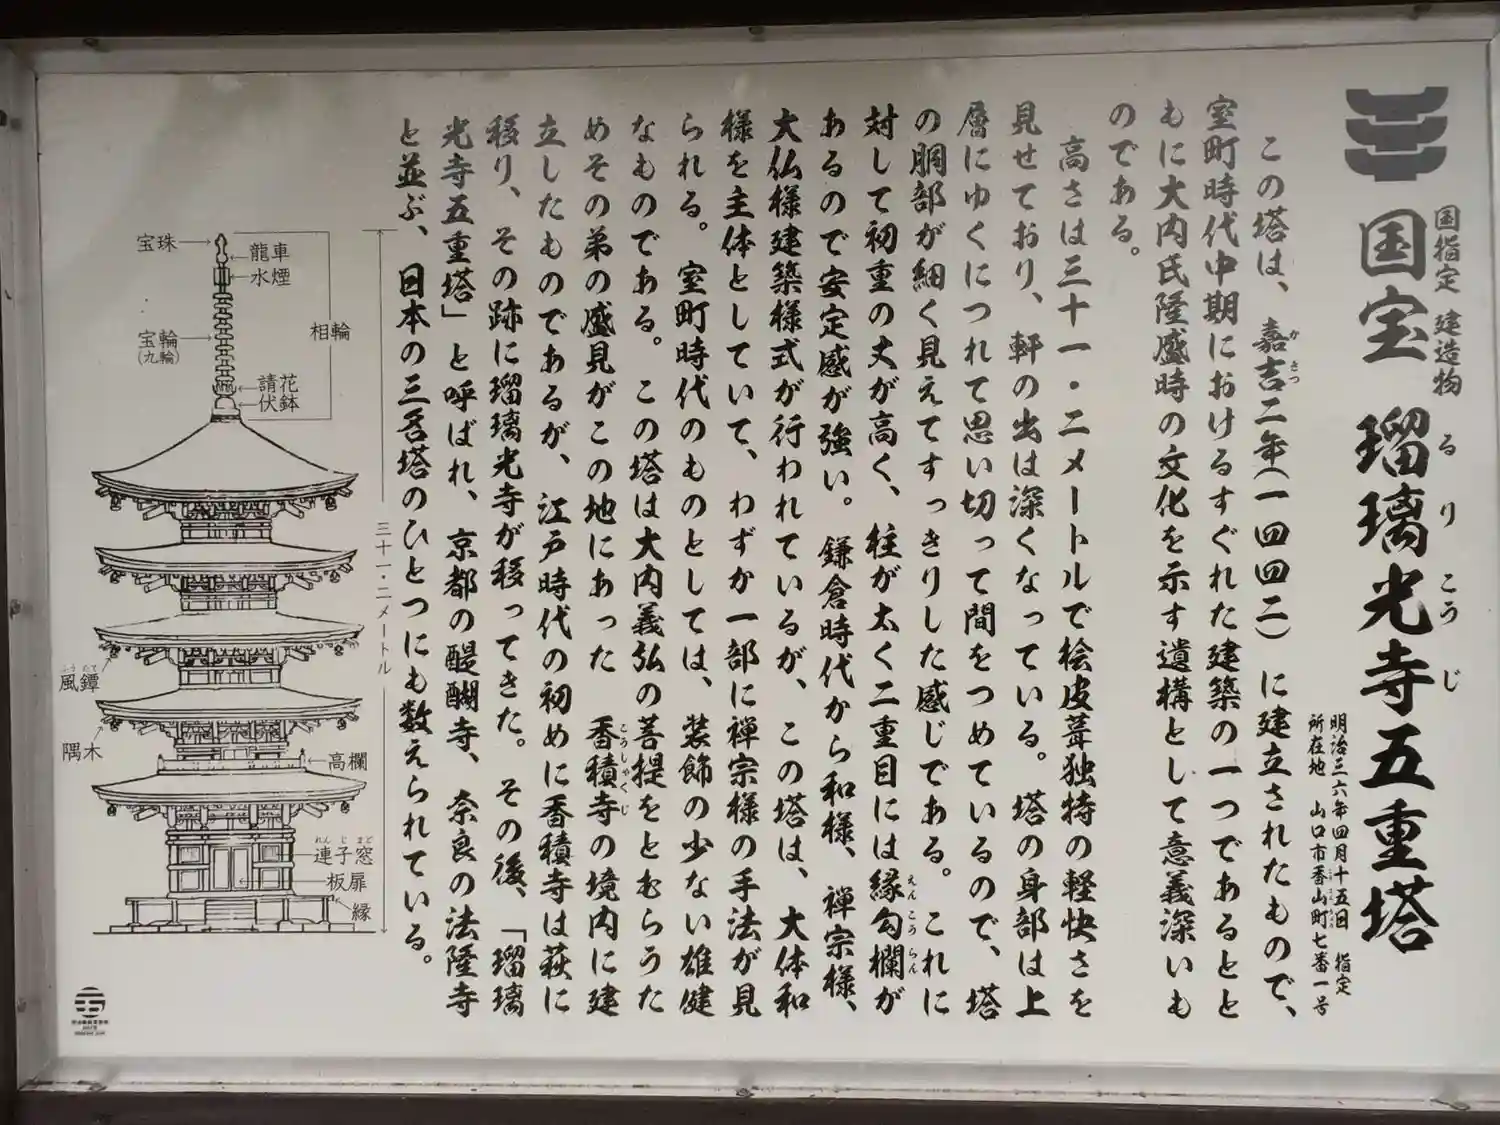 国指定 建造物
国宝 瑠璃光寺五重塔
るりこうじ
明治三六年四月十五日 指定
所在地 山口市香山町七番一号
この塔は、嘉吉二年(一四四二)に建立されたもので、
かきつ
室町時代中期におけるすぐれた建築の一つであるとと
もに大内氏隆盛時の文化を示す遺構として意義深いも
のである。
高さは三十一・二メートルで桧皮葺独特の軽快さを
見せており、軒の出は深くなっている。塔の身部は上
層にゆくにつれて思い切って間をつめているので、塔
の胴部が細く見えてすっきりした感じである。これに
対して初重の丈が高く、柱が太く二重目には縁勾欄が
えんこうらん
あるので安定感が強い。鎌倉時代から和様、禅宗様、
大仏様建築様式が行われているが、この塔は、大体和
様を主体としていて、わずか一部に禅宗様の手法が見
られる。室町時代のものとしては、装飾の少ない雄健
なものである。この塔は大内義弘の菩提をとむらうた
めその弟の盛見がこの地にあった 香積寺の境内に建
こうしゃくじ
立したものであるが、江戸時代の初めに香積寺は萩に
移り、その跡に瑠璃光寺が移ってきた。その後、「瑠璃
光寺五重塔」と呼ばれ、京都の醍醐寺、奈良の法隆寺
と並ぶ、日本の三名塔のひとつにも数えられている。
宝珠
龍車
水煙
相輪
宝輪
(九輪)
請花
伏鉢
三十一・二メートル
風鐔
隅木
高欄
れんじまど
連子窓
板扉
縁